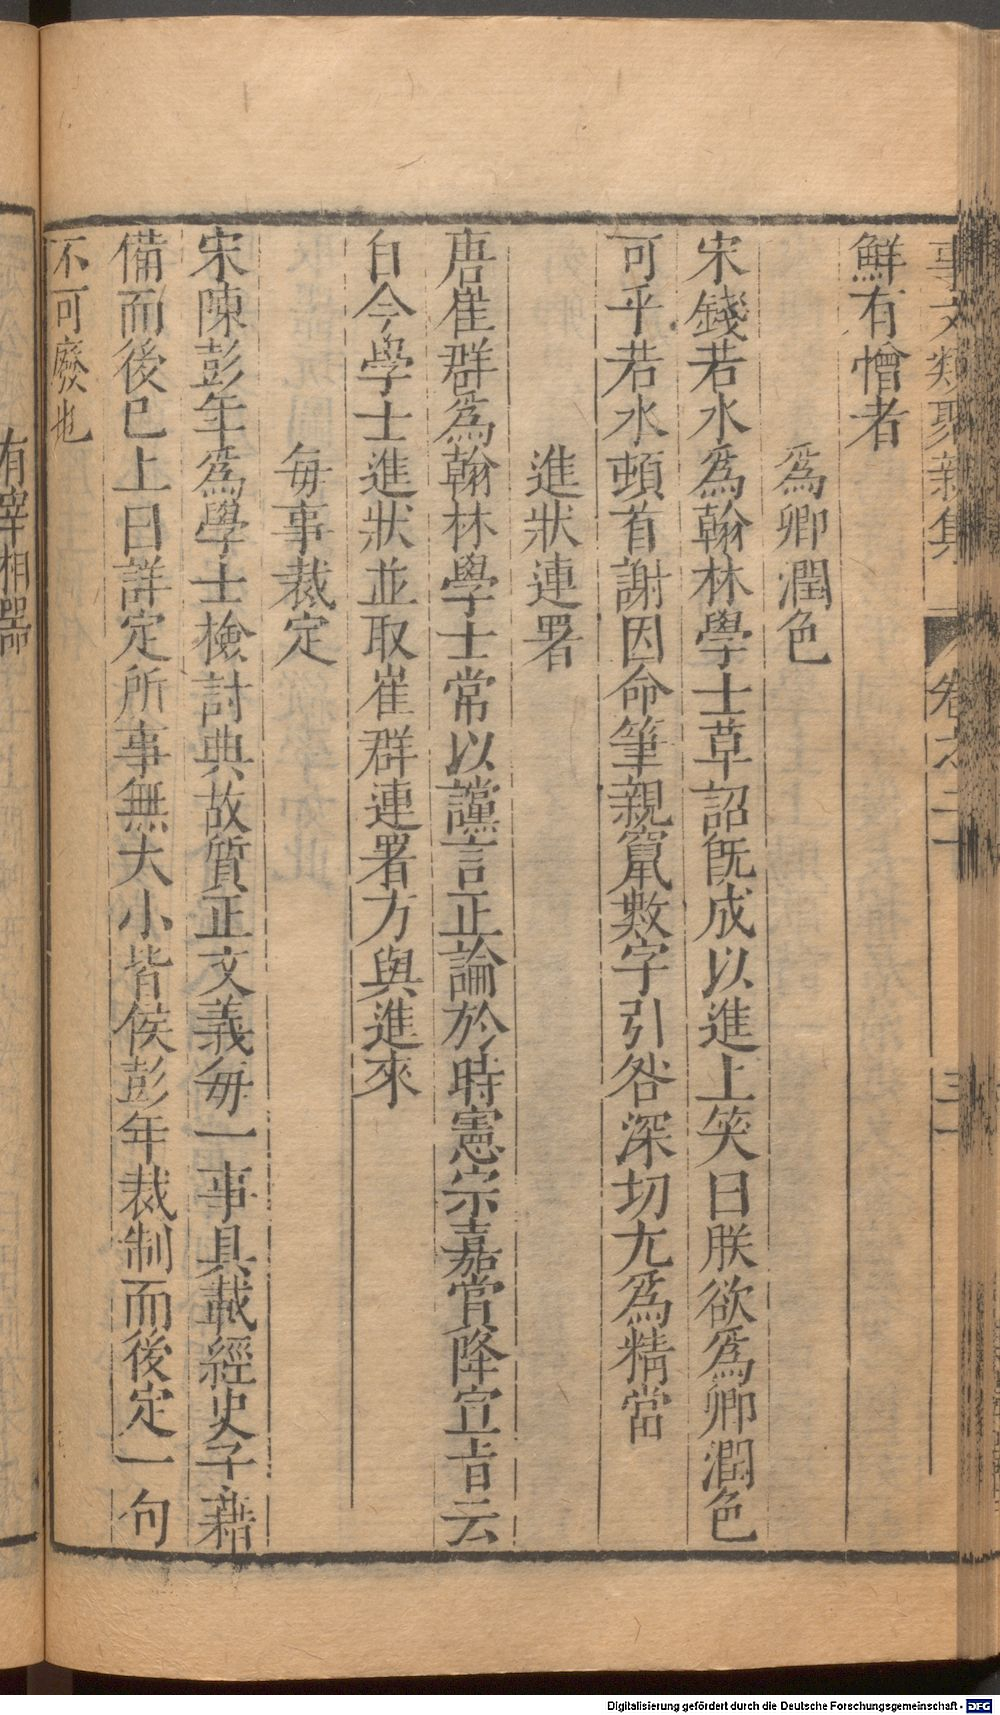 事文類聚新集 卷之二十 三十一
鮮有憎者
爲卿潤色
宋錢若水爲翰林學士草詔旣成以進上笑曰朕欲爲卿潤色
可乎若水頓首謝因命筆親竄數字引咎深切尤爲精當
進狀連署
唐崔群爲翰林學士常以讜言正論於時憲宗嘉賞降宣旨云
自今學士進狀並取崔群連署方與進來
每事裁定
宋陳彭年爲學士檢討典故質正文義每一事具載經史子藉
備而後已上曰詳定所事無大小皆俟彭年裁制而後定一句
不可廢也
有宰相器
Digitalisierung gefördert durch die Deutsche Forschungsgemeinschaft - DFG